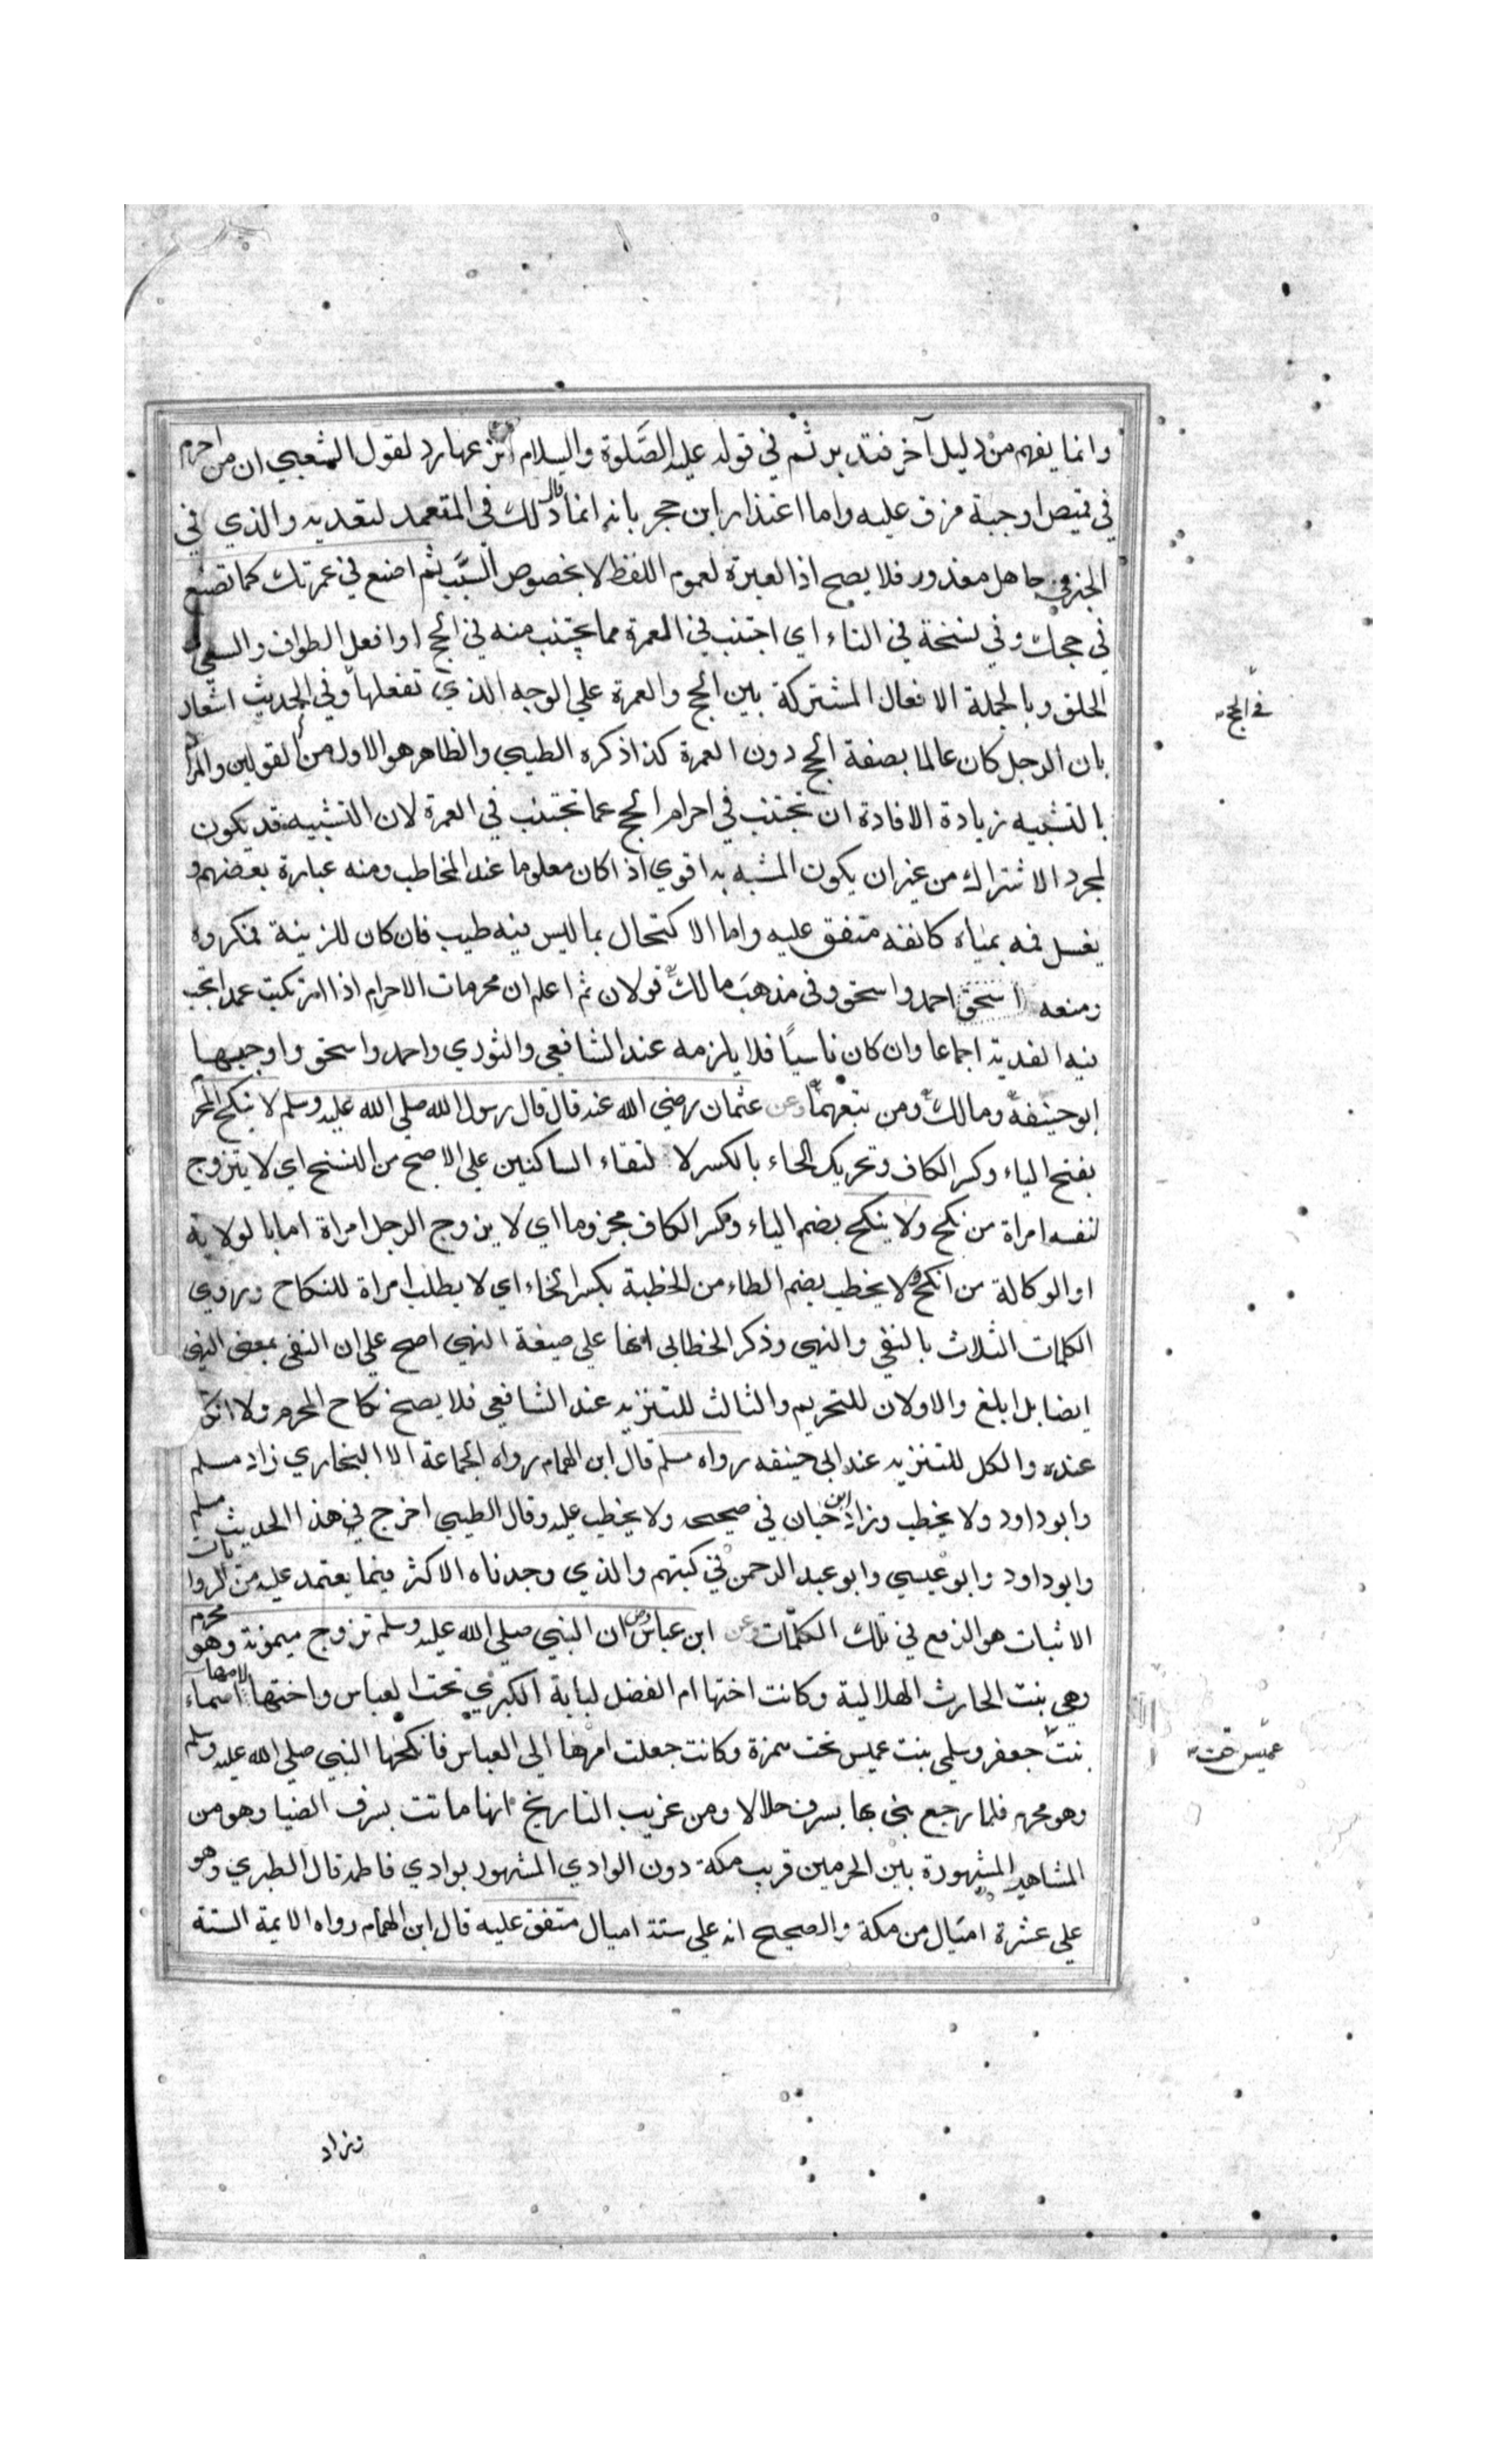 وانما يفهم من دليل آخر فتدبر ثم في قوله عليه الصلوة والسلام انزعها رد لقول الشعبي ان من احرم
في قميص او جبة مزق عليه واما اعتذار ابن حجر بانه انما قال ذلك في المتعمد لتعديه والذي في
الخبر في جاهل معذور فلا يصح اذ العبرة لعموم اللفظ لا بخصوص السبب ثم اصنع في عمرتك كما تصنع
في حجك وفي نسخة في التاء اي اجتنب في العمرة مما يجتنب منه في الحج او افعل الطواف والسعي
الحلق وبالجملة الافعال المشتركة بين الحج والعمرة علي الوجه الذي تفعلها وفي الحديث اشعار
في الحج
بان الرجل كان عالما بصفة الحج دون العمرة كذا ذكره الطيبي والظاهر هو الاول من القولين والمراد
بالتشبيه زيادة الافادة ان تجتنب في احرام الحج عما تجتنب في العمرة لان التشبيه قد يكون
لمجرد الاشتراك من غير ان يكون المشبه به اقوي اذا كان معلوما عند المخاطب ومنه عبارة بعضهم و
يغسل فمه بمياه كانفه متفق عليه واما الاكتحال بما ليس فيه طيب فان كان للزينة فمكروه
ومنعه اسحق احمد واسحق وفي مذهب مالك قولان ثم اعلم ان محرمات الاحرام اذا ارتكبت عمدا تجب
فيه الفدية اجماعا وان كان ناسيا فلا يلزمه عند الشافعي والثوري واحمد واسحق واوجبها
ابو حنيفة ومالك ومن تبعهما وعن عثمان رضي الله عنه قال قال رسول الله صلي الله عليه وسلم لا ينكح المحرم
بفتح الياء وكسر الكاف وتحريك الحاء بالكسر لالتقاء الساكنين علي الاصح من النسخ اي لا يتزوج
لنفسه امراة من نكح ولا ينكح بضم الياء وكسر الكاف مجزوما اي لا يزوج الرجل امراة اما بالولاية
او الوكالة من انكح ولا يخطب بضم الطاء من الخطبة بكسر الخاء اي لا يطلب امراة للنكاح وروي
الكلمات الثلاث بالنفي والنهي وذكر الخطابي انها علي صيغة النهي اصح علي ان النفي بمعني النهي
ايضا بل ابلغ والاولان للتحريم والثالث للتنزيه عند الشافعي فلا يصح نكاح المحرم ولا انكا
عنده والكل للتنزيه عند ابي حنيفه رواه مسلم قال ابن الهمام رواه الجماعة الا البخاري زاد مسلم
وابو داود ولا يخطب وزاد ابن حبان في صحيحه ولا يخطب عليه وقال الطيبي اخرج في هذا الحديث مسلم
وابو داود وابو عيسي وابو عبد الرحمن في كتبهم والذي وجدناه الاكثر فيما يعتمد عليه من الروايات
الاثبات هو الرفع في تلك الكلمات وعن ابن عباس ان النبي صلي الله عليه وسلم تزوج ميمونة وهو محرم
وهي بنت الحارث الهلالية وكانت اختها ام الفضل لبابة الكبري تحت العباس واختها لامها اسماء
بنت جعفر وسلمي بنت عميس تحت حمزة وكانت جعلت امرها الي العباس فانكحها النبي صلي الله عليه وسلم
عميس تحت
وهو محرم فلما رجع بني بها بسرف حلالا ومن غريب التاريخ انها ماتت بسرف ايضا وهو من
المشاهير المشهورة بين الحرمين قريب مكة دون الوادي المشهور بوادي فاطمة قال الطبري وهو
علي عشرة اميال من مكة والصحيح انه علي ستة اميال متفق عليه قال ابن الهمام رواه الايمة الستة
وزاد